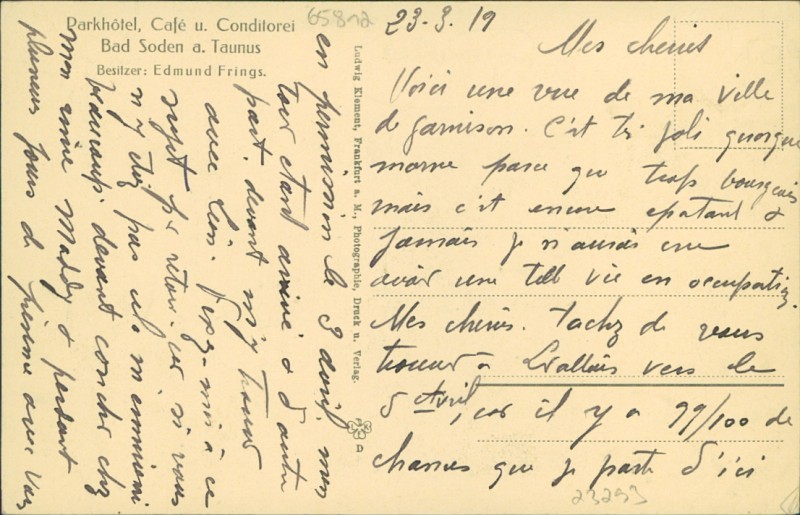 Parkhôtel, Café u. Conditorei
Bad Soden a. Taunus
Besitzer: Edmund Frings.
65812
23-3.19
Mes cheries
Voici une vue de ma ville
de garnison. C'est très joli quoique
morne parce que trop bourgeois
mais c'est encore epatant &
jamais je n'aurais cru
avoir une telle vie en occupation.
Mes cheries. Tachez de vous
trouver à Levallois vers le
5 Avril, car il y a 99/100 de
chances que je parte d'ici
23293
en permission le 3 mon
tour etant arrivé & d'autre
part, devant m'y trouver
avec Léon. fixez-moi à ce
sujet par retour. car si vous
n'y etiez pas cela m'ennuierai
beaucoup devant coucher chez
mon amie Maddy & perdant
plusieurs jours de présence avec vous
Ludwig Klement, Frankfurt a. M., Photographie, Druck u. Verlag.
D